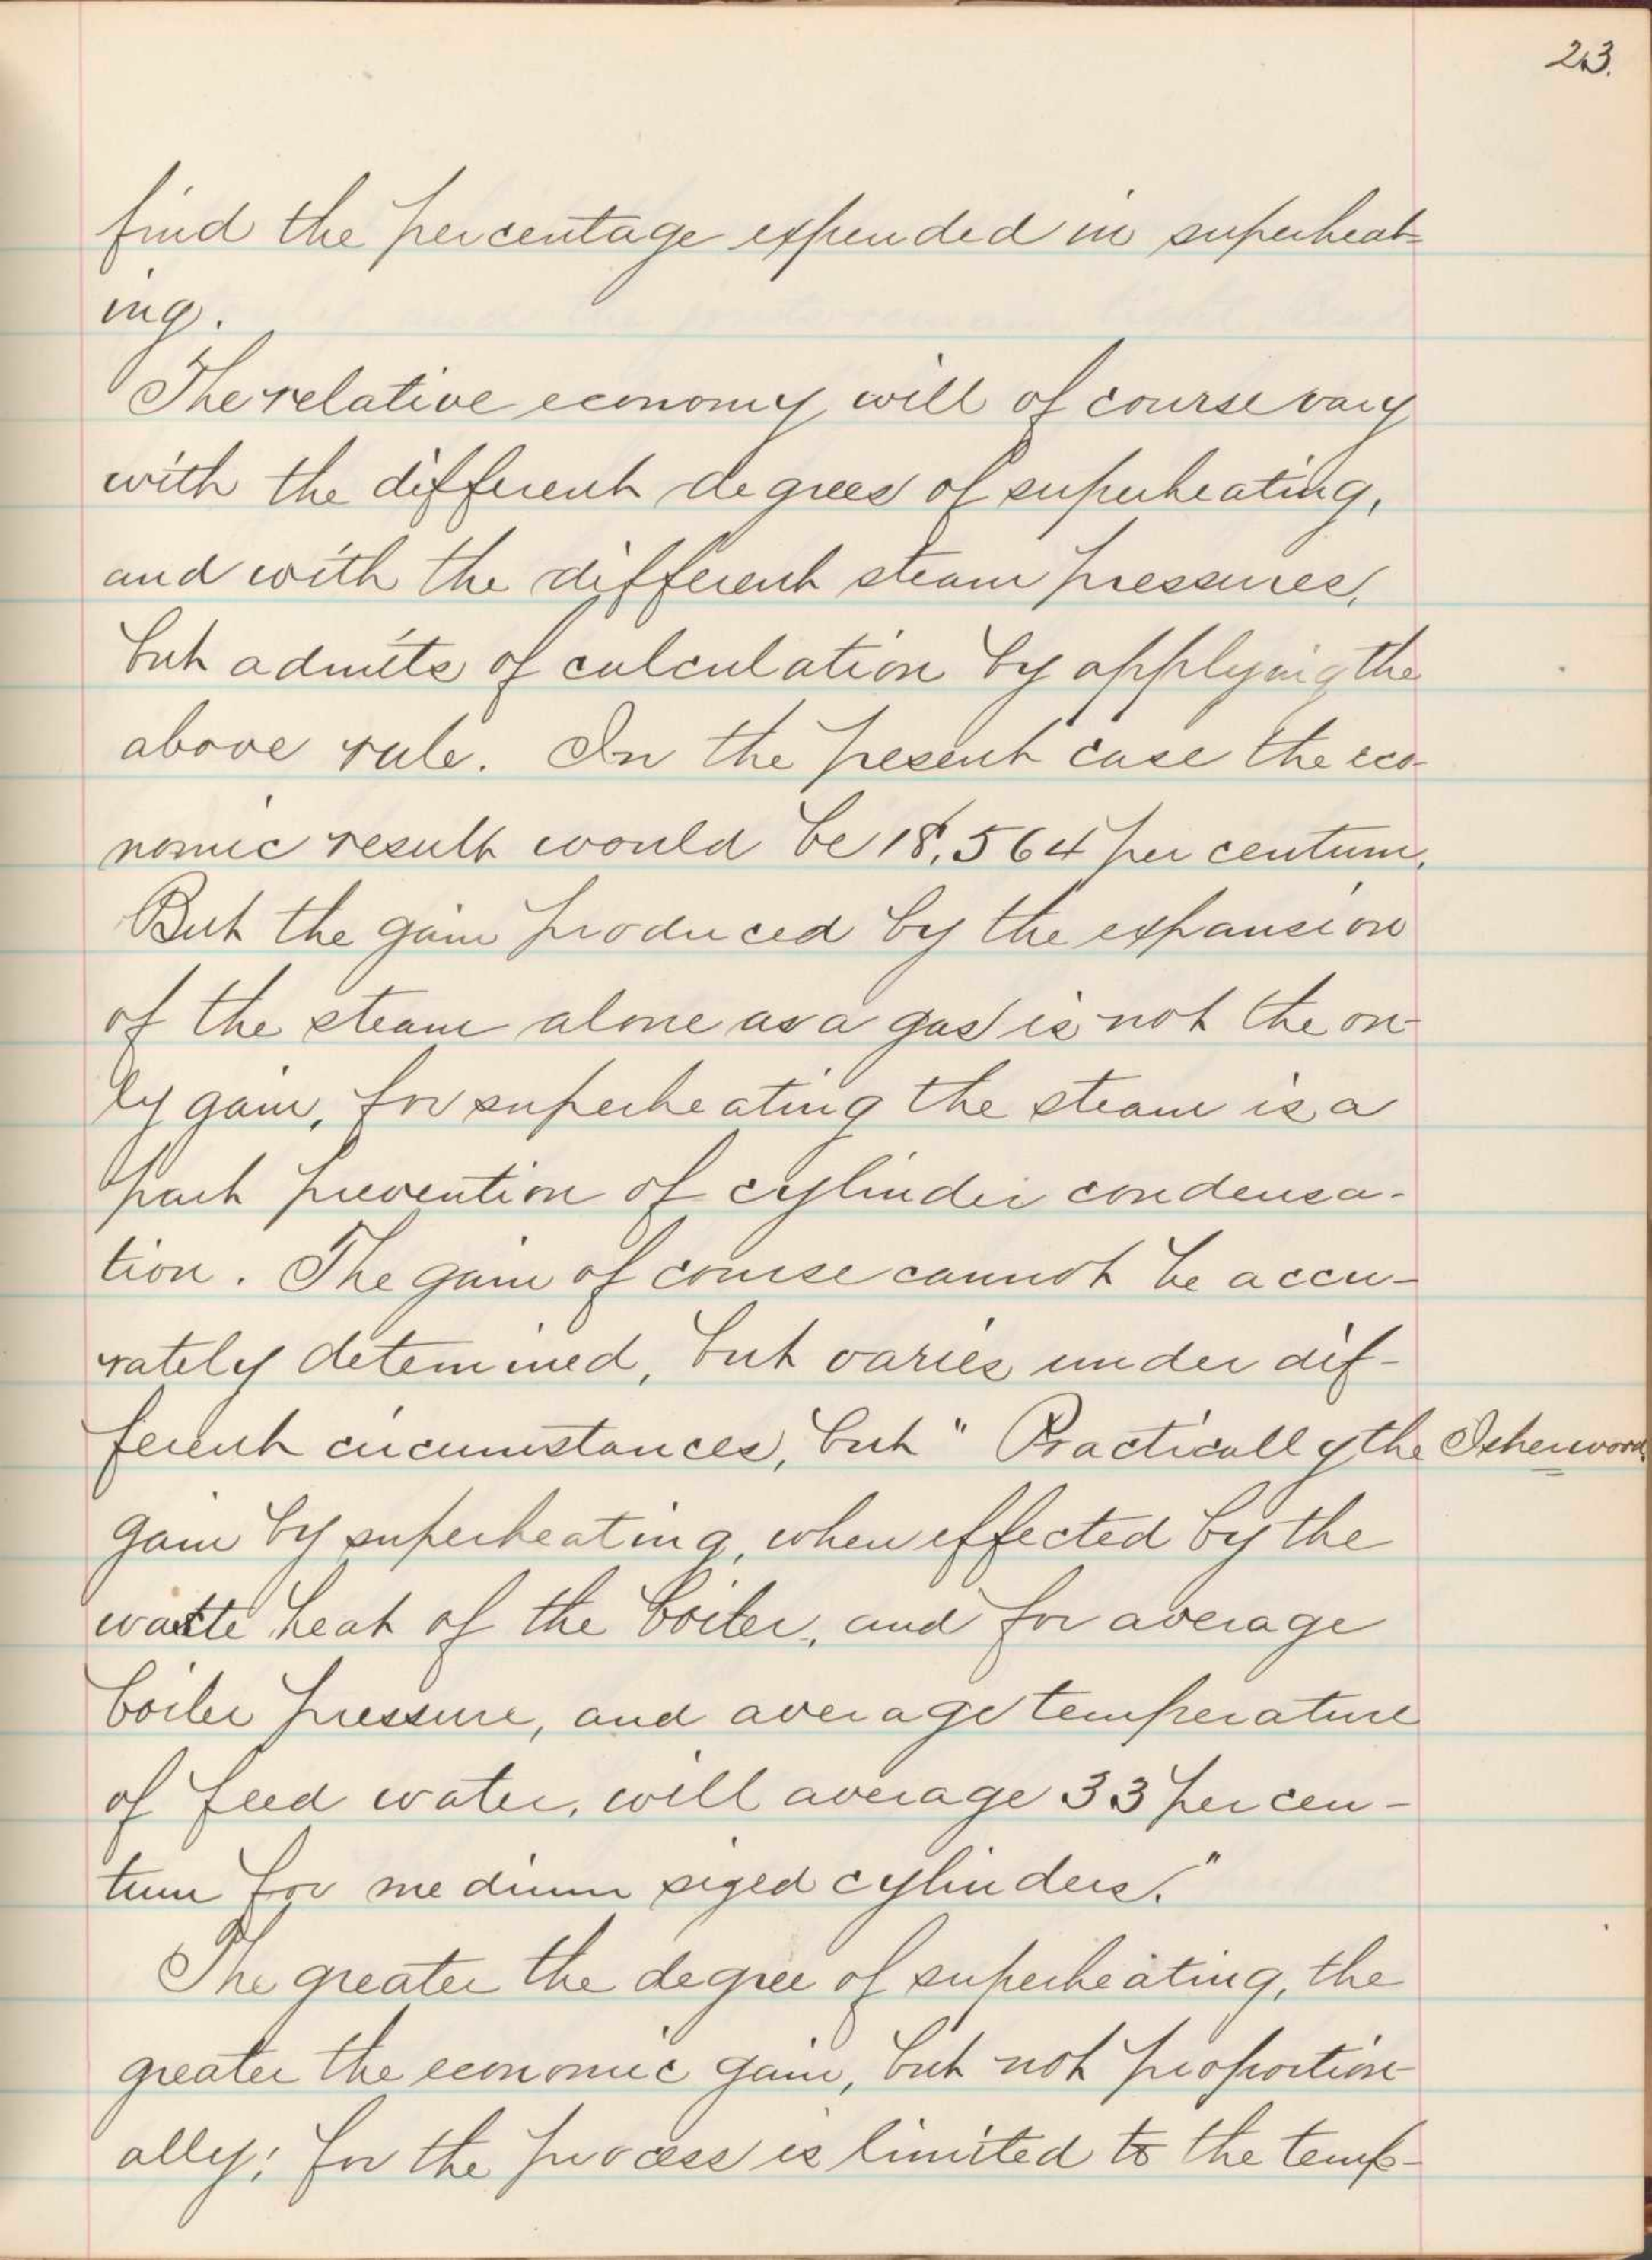 23.
find the percentage expended in superheat-
ing.
The relative economy will of course vary
with the different degrees of superheating,
and with the different steam pressures,
but admits of calculation by applying the
above rule. In the present case the eco-
nomic result would be 18.564 per centum.
But the gain produced by the expansion
of the steam alone as a gas is not the on-
ly gain, for superheating the steam is a
part prevention of cylinder condensa-
tion. The gain of course cannot be accu-
rately determined, but varies under dif-
ferent circumstances, but " Practically the Isherwood.
gain by superheating, when effected by the
waste heat of the boiler, and for average
boiler pressure, and average temperature
of feed water, will average 33 per cen-
tum for medium sized cylinders."
The greater the degree of superheating, the
greater the economic gain, but not proportion-
ally; for the process is limited to the temp-